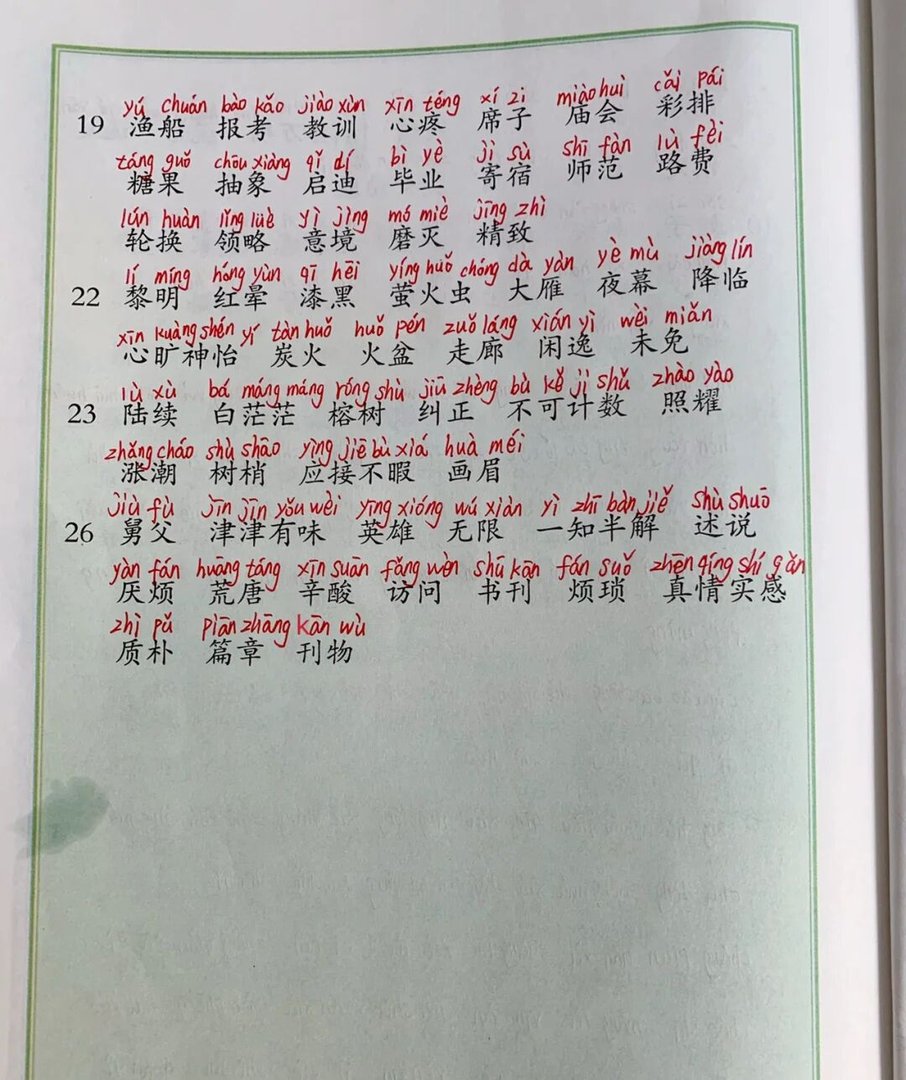 yú chuán bào kǎo jiào xùn xīn téng xí zi miào huì cǎi pái
19 渔船 报考 教训 心疼 席子 庙会 彩排
táng guǒ chōu xiàng qǐ dí bì yè jì sù shī fàn lù fèi
糖果 抽象 启迪 毕业 寄宿 师范 路费
lún huàn lǐng lüè yì jìng mó miè jīng zhì
轮换 领略 意境 磨灭 精致
lí míng hóng yùn qī hēi yíng huǒ chóng dà yàn yè mù jiàng lín
22 黎明 红晕 漆黑 萤火虫 大雁 夜幕 降临
xīn kuàng shén yí tàn huǒ huǒ pén zuǒ láng xián yì wèi miǎn
心旷神怡 炭火 火盆 走廊 闲逸 未免
lù xù bá máng máng róng shù jiū zhèng bù kě jì shǔ zhào yào
23 陆续 白茫茫 榕树 纠正 不可计数 照耀
zhǎng cháo shù shāo yìng jiē bù xiá huà méi
涨潮 树梢 应接不暇 画眉
jiù fù jīn jīn yǒu wèi yīng xióng wú xiàn yì zhī bàn jiě shù shuō
26 舅父 津津有味 英雄 无限 一知半解 述说
yàn fán huāng táng xīn suān fǎng wèn shū kān fán suǒ zhēn qíng shí gǎn
厌烦 荒唐 辛酸 访问 书刊 烦琐 真情实感
zhì pǔ piān zhāng kān wù
质朴 篇章 刊物